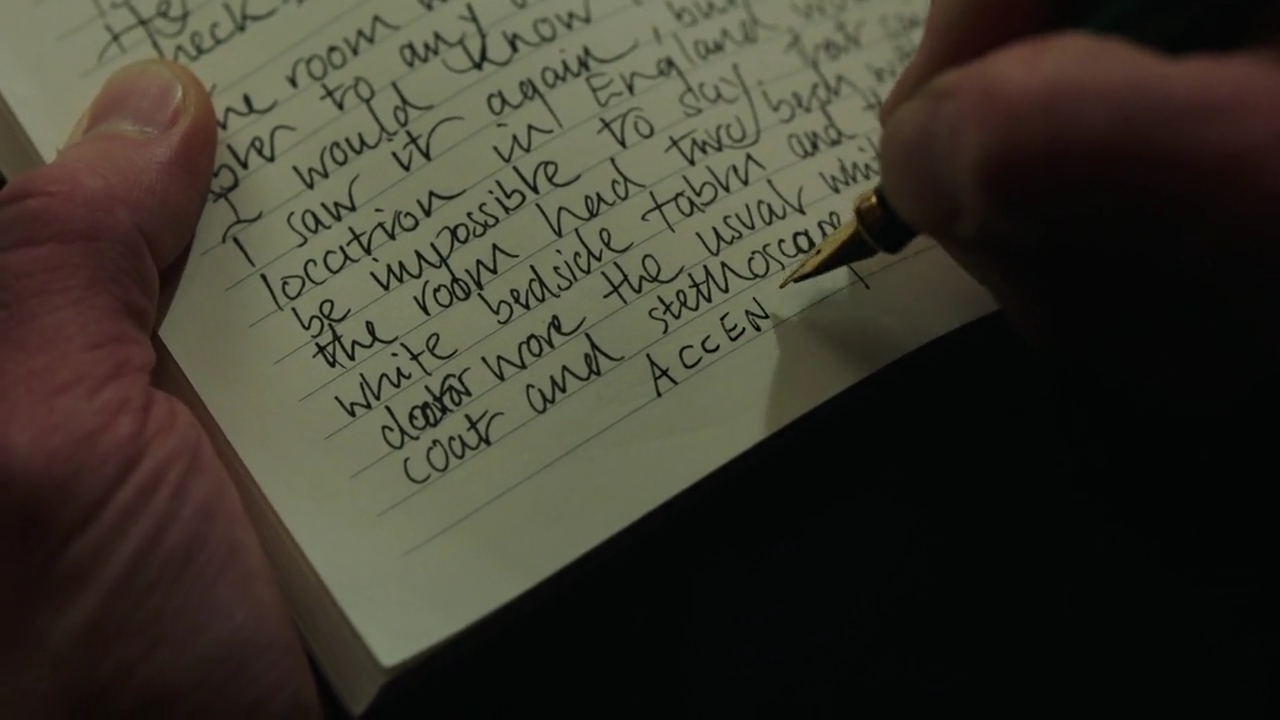 He
neck
he room
to any
I would know
I saw it again, bu
location in England
be impossible to say
the room had two
white bedside tables and
doctor wore the usual whi
coat and stethoscope
ACCEN